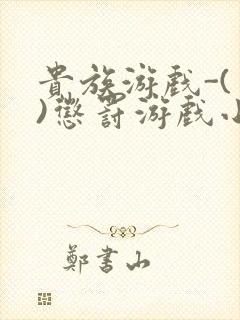 貴族游戲-(
)懲罰游戲小
鄭書山